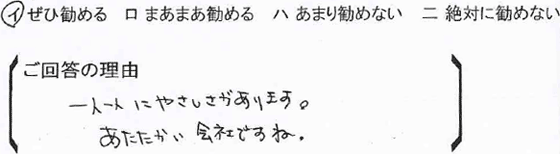 イ ぜひ勧める ロ まあまあ勧める ハ あまり勧めない ニ 絶対に勧めない
ご回答の理由
一人一人にやさしさがあります。
あたたかい会社ですね。